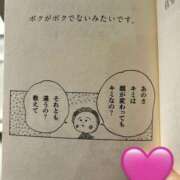 ボクがボクでないみたいです。
あのさ
キミは
顔が変わっても
キミなの？
それとも
違うの？
教えて